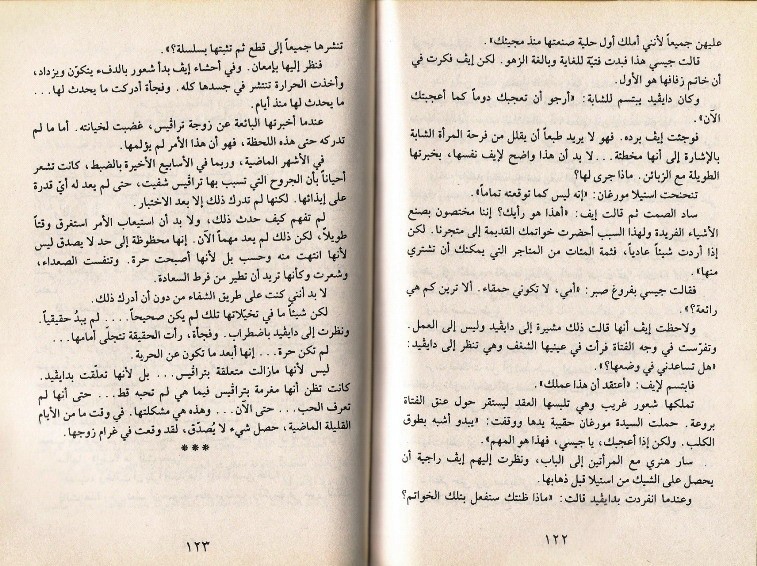 عليهن جميعاً لأنني أملك أول حلية صنعتها منذ مجيئك».
قالت جيسي هذا فبدت فتيّة للغاية وبالغة الزهو. لكن إيڤ فكرت في
أن خاتم زفافها هو الأول.
وكان دايڤيد يبتسم للشابة: «أرجو أن تعجبك دوماً كما أعجبتك
الآن».
فوجئت إيڤ برده. فهو لا يريد طبعاً أن يقلل من فرحة المرأة الشابة
بالإشارة إلى أنها مخطئة... لا بد أن هذا واضح لإيف نفسها، بخبرتها
الطويلة مع الزبائن. ماذا جرى لها؟
تنحنحت استيلا مورغان: «إنه ليس كما توقعته تماماً».
ساد الصمت ثم قالت إيف: «أهذا هو رأيك؟ إننا مختصون بصنع
الأشياء الفريدة ولهذا السبب أحضرت خواتمك القديمة إلى متجرنا. لكن
إذا أردت شيئاً عادياً، فثمة المئات من المتاجر التي يمكنك أن تشتري
منها».
فقالت جيسي بفروغ صبر: «أمي، لا تكوني حمقاء. ألا ترين كم هي
رائعة؟».
ولاحظت إيڤ أنها قالت ذلك مشيرة إلى دايڤيد وليس إلى العمل.
وتفرّست في وجه الفتاة فرأت في عينيها الشغف وهي تنظر إلى دايڤيد:
«هل تساعدني في وضعها؟».
فابتسم لإيف: «أعتقد أن هذا عملك».
تملكها شعور غريب وهي تلبسها العقد ليستقر حول عنق الفتاة
بروعة. حملت السيدة مورغان حقيبة يدها ووقفت: «يبدو أشبه بطوق
الكلب. ولكن إذا أعجبك، يا جيسي، فهذا هو المهم».
سار هنري مع المرأتين إلى الباب، ونظرت إليهم إيڤ راجية أن
يحصل على الشيك من استيلا قبل ذهابها.
وعندما انفردت بدايڤيد قالت: «ماذا ظنتك ستفعل بتلك الخواتم؟
١٢٢
تنشرها جميعاً إلى قطع ثم تثبتها بسلسلة؟».
فنظر إليها بإمعان. وفي أحشاء إيڤ بدأ شعور بالدفء يتكوّن ويزداد،
وأخذت الحرارة تنتشر في جسدها كله. وفجأة أدركت ما يحدث لها...
ما يحدث لها منذ أيام.
عندما أخبرتها البائعة عن زوجة تراڤيس، غضبت لخيانته. أما ما لم
تدركه حتى هذه اللحظة، فهو أن هذا الأمر لم يؤلمها.
في الأشهر الماضية، وربما في الأسابيع الأخيرة بالضبط، كانت تشعر
أحياناً بأن الجروح التي تسبب بها تراڤيس شفيت، حتى لم يعد له أيّ قدرة
على إيذائها. لكنها لم تدرك ذلك إلا بعد الاختبار.
لم تفهم كيف حدث ذلك، ولا بد أن استيعاب الأمر استغرق وقتاً
طويلاً، لكن ذلك لم يعد مهماً الآن. إنها محظوظة إلى حد لا يصدق ليس
لأنها انتهت منه وحسب بل لأنها أصبحت حرة. وتنفست الصعداء،
وشعرت وكأنها تريد أن تطير من فرط السعادة.
لا بد أنني كنت على طريق الشفاء من دون أن أدرك ذلك.
لكن شيئاً ما في تخيّلاتها تلك لم يكن صحيحاً... لم يبدُ حقيقياً.
ونظرت إلى دايڤيد باضطراب. وفجأة، رأت الحقيقة تتجلّى أمامها...
لم تكن حرة... إنها أبعد ما تكون عن الحرية.
ليس لأنها مازالت متعلقة بتراڤيس... بل لأنها تعلّقت بدايڤيد.
كانت تظن أنها مغرمة بتراڤيس فيما هي لم تحبه قط... حتى أنها لم
تعرف الحب... حتى الآن... وهذه هي مشكلتها. في وقت ما من الأيام
القليلة الماضية، حصل شيء لا يُصدّق، لقد وقعت في غرام زوجها.
***
١٢٣